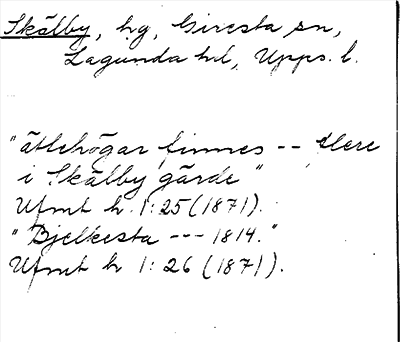 Skälby, hg, Giresta sn,
Lagunda hd, Upps. l.
"ättehögar finnes -- flere
i Skälby gärde"
Ufmt h. 1:25 (1871).
"Bjelkesta --- 1814."
Ufmt h 1:26 (1871).